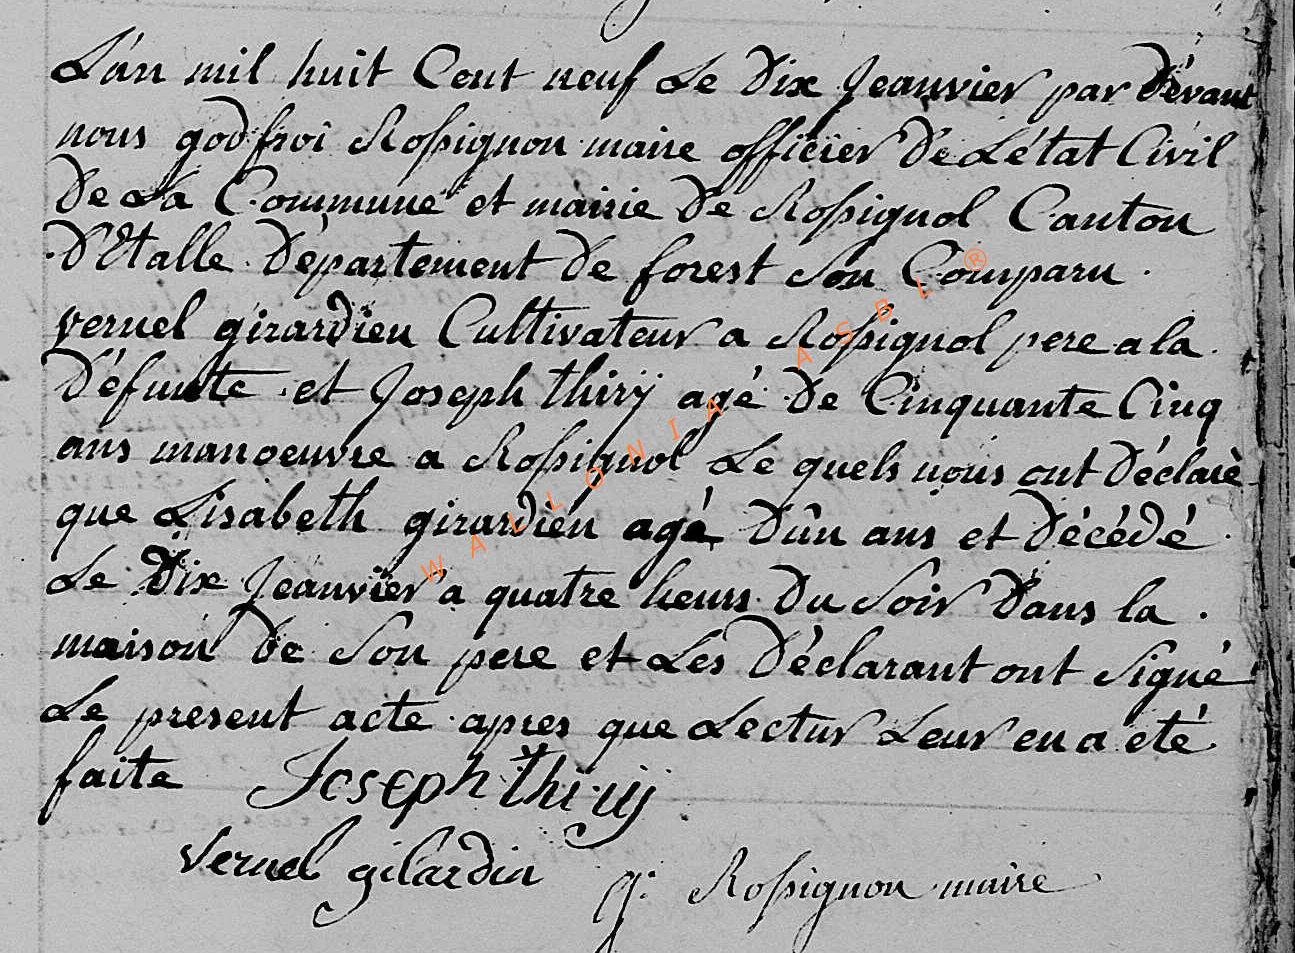 L'an mil huit Cent neuf Le Dix Jeanvier par Dévant
nous godfroi Rossignon maire officier De L'état Civil
De La Commune et mairie De Rossignol Canton
D'Etalle Département De forest Son Comparu
vernel girardien Cultivateur a Rossignol pere a la
Défunte et Joseph thirÿ agé De Cinquante Cinq
ans manoeuvre a Rossignol Le quels nous ont Déclarè
que Lisabeth girardien agé D'un ans et Décédé
Le Dix Jeanvier a quatre heurs Du Soir Dans la
maison De Son pere et Les Déclarant ont Signé
Le present acte apres que Lectur Leur en a eté
faite Joseph thirij
vernel gilardin g: Rossignon maire
WALLONIA ASBL ®